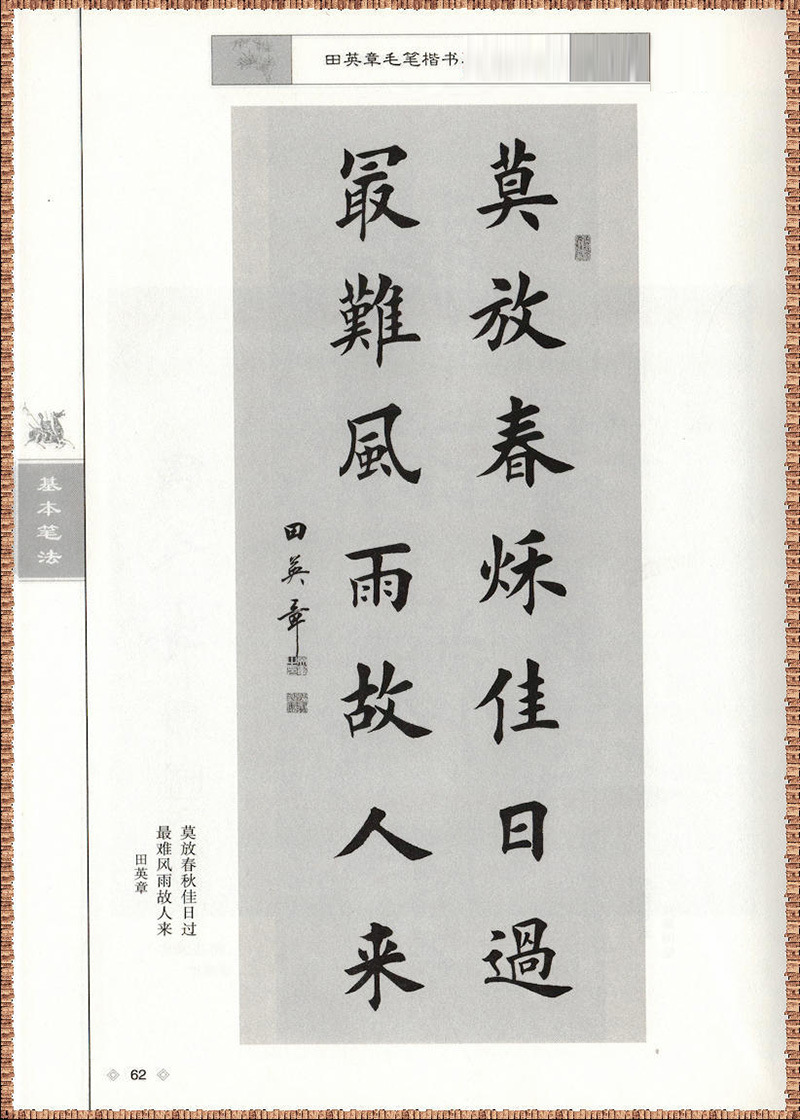 田英章毛笔楷书
莫放春烁佳日過
冣難風雨故人来
田英章
基本笔法
莫放春秋佳日过
最难风雨故人来
田英章
62